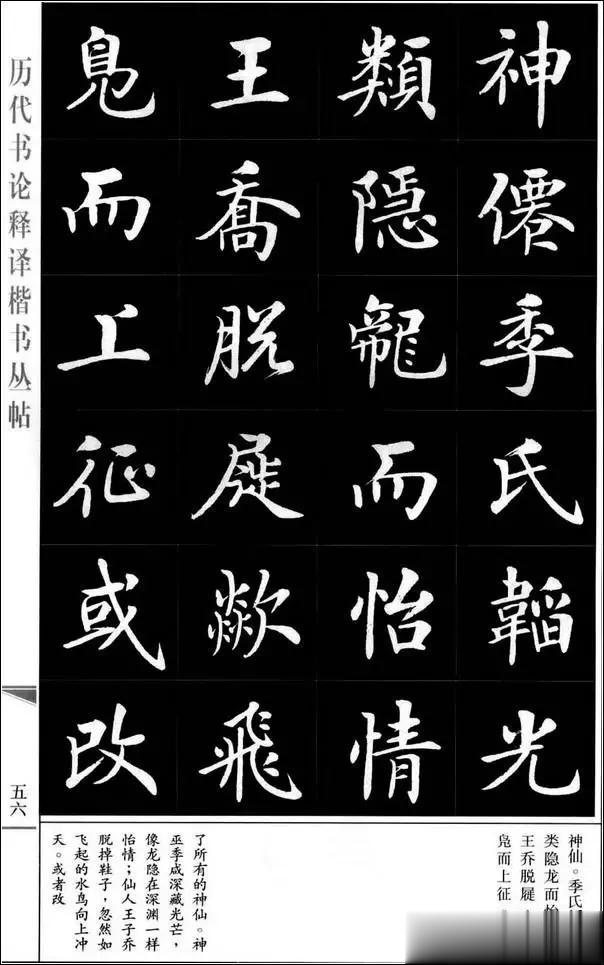 神僊季氏韜光
類隱龍而怡情
王喬脫屣歘飛
鳬而上征或改
历代书论释译楷书丛帖
五六
神仙。季氏
类隐龙而怡
王乔脱屣
凫而上征
了所有的神仙。神
巫季咸深藏光芒，
像龙隐在深渊一样
怡情；仙人王子乔
脱掉鞋子，忽然如
飞起的水鸟向上冲
天。或者改